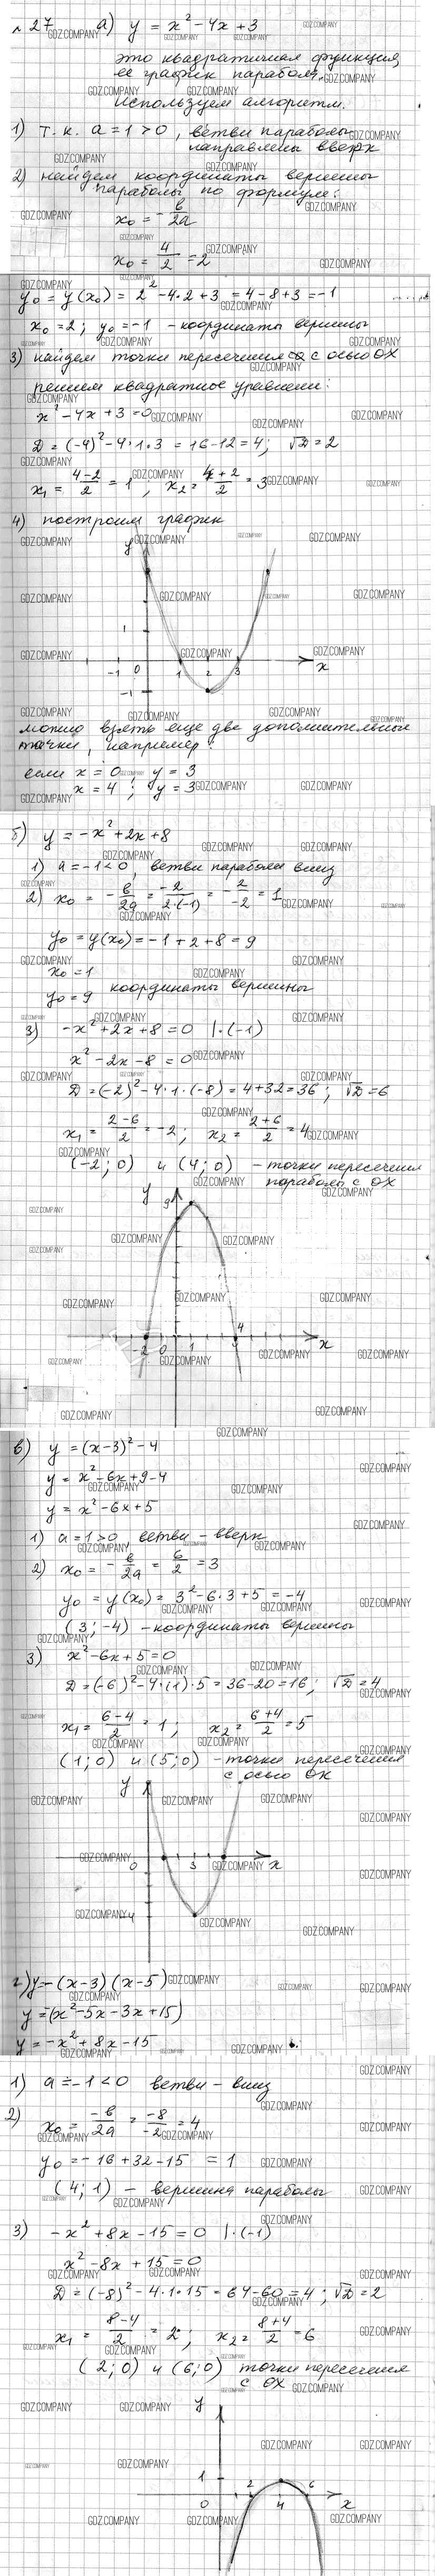 №27 а) y = x² - 4x + 3
это квадратичная функция,
ее график парабола.
Используем алгоритм.
1) т.к. a = 1 > 0, ветви параболы
направлены вверх
2) найдем координаты вершины
параболы по формуле:
x₀ = -b/2a
x₀ = 4/2 = 2
y₀ = y(x₀) = 2² - 4·2 + 3 = 4 - 8 + 3 = -1
x₀ = 2; y₀ = -1 - координаты вершины
3) найдем точки пересечения с осью OX
решим квадратное уравнение:
x² - 4x + 3 = 0
D = (-4)² - 4·1·3 = 16 - 12 = 4; √D = 2
x₁ = (4-2)/2 = 1; x₂ = (4+2)/2 = 3
4) построим график
y
1
-1 0 1 2 3 x
-1
можно взять еще две дополнительные
точки, например:
если x = 0, y = 3
x = 4; y = 3
б) y = -x² + 2x + 8
1) a = -1 < 0, ветви параболы вниз
2) x₀ = -b/2a = -2/2·(-1) = -2/-2 = 1
y₀ = y(x₀) = -1 + 2 + 8 = 9
x₀ = 1
y₀ = 9 координаты вершины
3) -x² + 2x + 8 = 0 |·(-1)
x² - 2x - 8 = 0
D = (-2)² - 4·1·(-8) = 4 + 32 = 36; √D = 6
x₁ = (2-6)/2 = -2; x₂ = (2+6)/2 = 4
(-2; 0) и (4; 0) - точки пересечения
параболы с OX
y
9
-2 0 1 4 x
в) y = (x-3)² - 4
y = x² - 6x + 9 - 4
y = x² - 6x + 5
1) a = 1 > 0 ветви - вверх
2) x₀ = -b/2a = 6/2 = 3
y₀ = y(x₀) = 3² - 6·3 + 5 = -4
(3; -4) - координаты вершины
3) x² - 6x + 5 = 0
D = (-6)² - 4·(1)·5 = 36 - 20 = 16; √D = 4
x₁ = (6-4)/2 = 1; x₂ = (6+4)/2 = 5
(1; 0) и (5; 0) - точки пересечения
с осью OX
y
0 3 x
-4
г) y = -(x-3)(x-5)
y = -(x² - 5x - 3x + 15)
y = -x² + 8x - 15
1) a = -1 < 0 ветви - вниз
2) x₀ = -b/2a = -8/-2 = 4
y₀ = -16 + 32 - 15 = 1
(4; 1) - вершина параболы
3) -x² + 8x - 15 = 0 |·(-1)
x² - 8x + 15 = 0
D = (-8)² - 4·1·15 = 64 - 60 = 4; √D = 2
x₁ = (8-4)/2 = 2; x₂ = (8+4)/2 = 6
(2; 0) и (6; 0) точки пересечения
с OX
y
1 2 6
0 4 x
GDZ.COMPANY